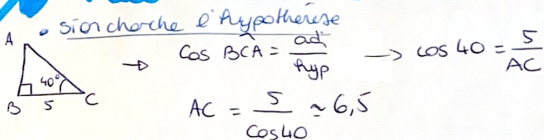 • si on cherche l'hypothénèse
A
40°
B 5 C
→ cos BĈA = adj/hyp → cos 40 = 5/AC
AC = 5/cos 40 ≃ 6,5